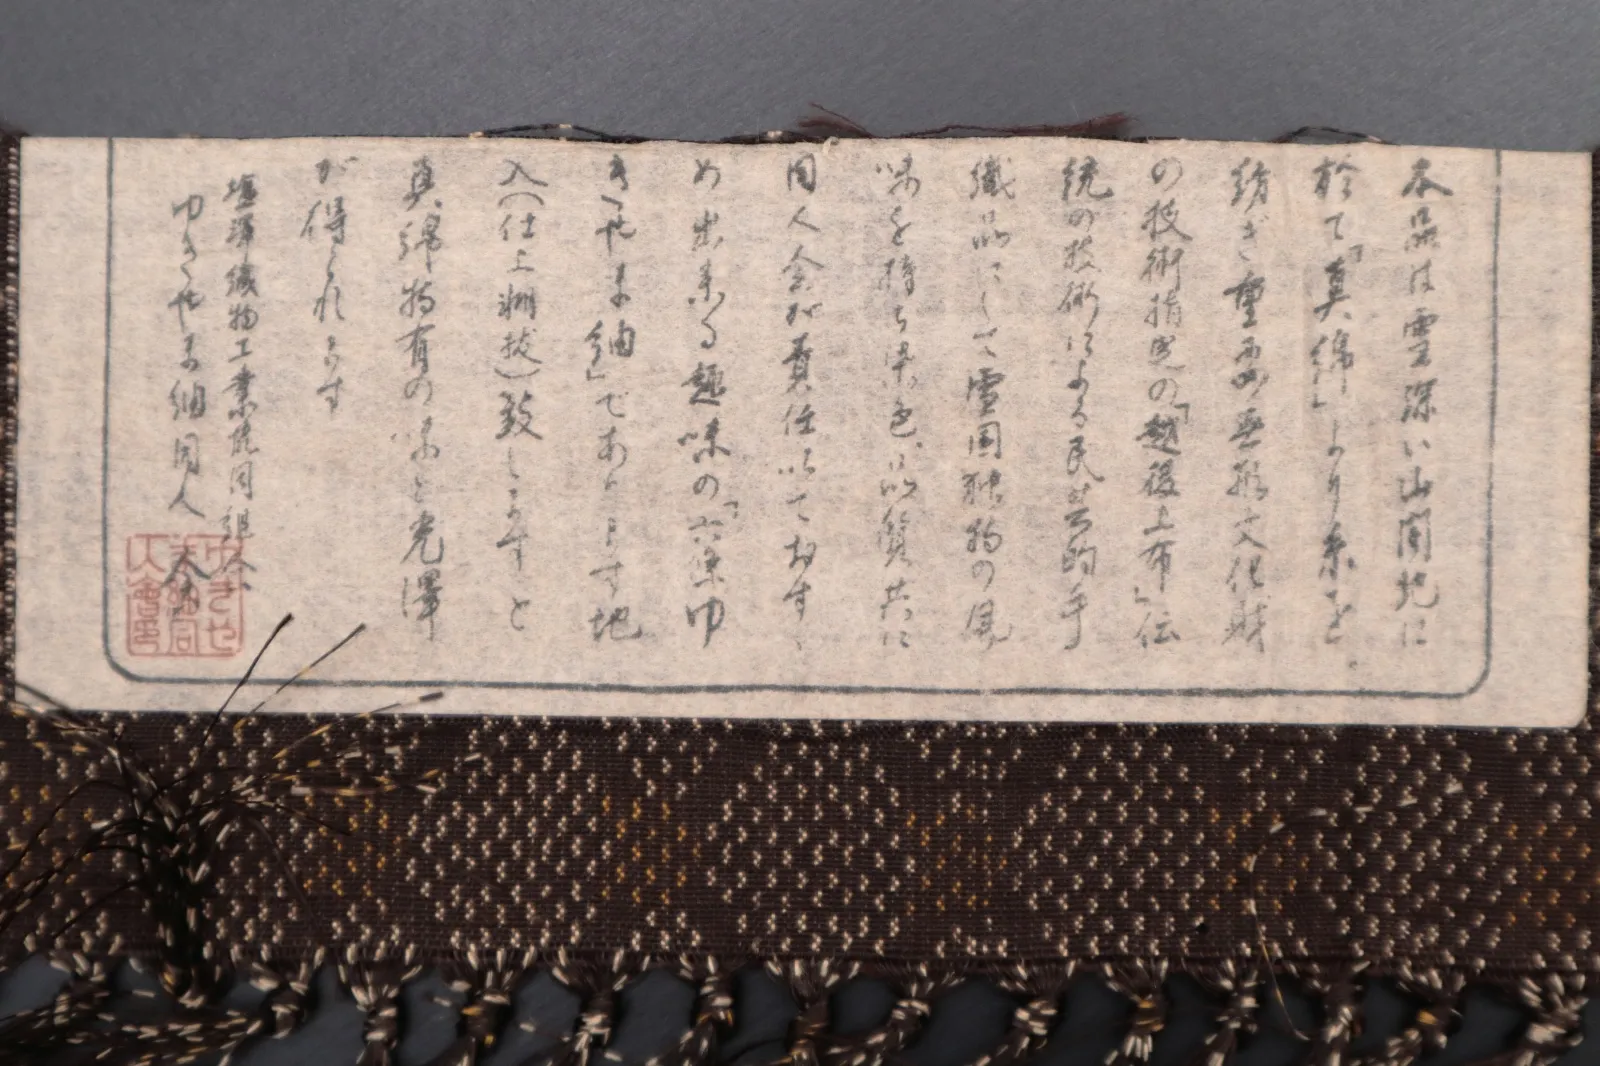 本品は雪深い山間地に
於て「真綿」より糸を
紡ぎ重要無形文化財
の技術指定の「越後上布」伝
統の技術による民芸的手
織品にして雪国独物の風
味を持ち染色、品質共に
同人会が責任以ておすゝ
め出来る趣味の「六染ゆ
きやま紬」であります地
入(仕上糊抜)致しますと
真綿物有の味と光澤
が得られます
塩澤織物工業協同組合
ゆきやま紬同人会
ゆきや
ま紬同
人會